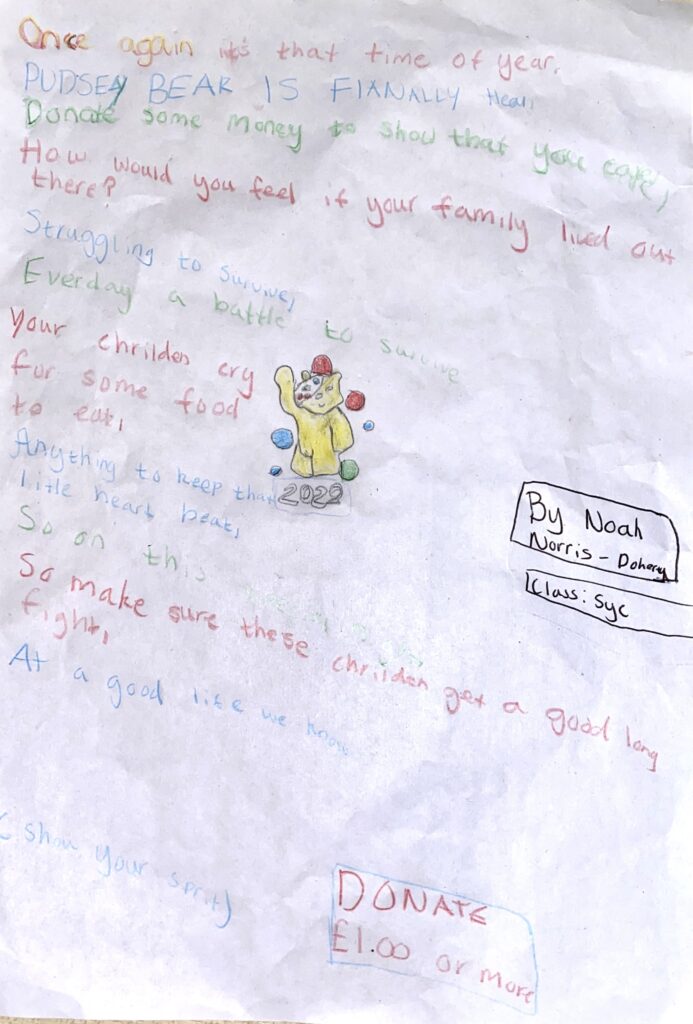 Once again it's that time of year,
PUDSEY BEAR IS FIANALLY Hear,
Donate some money to show that you care,
How would you feel if your family lived out
there?
Struggling to survive,
Everday a battle to survive
Your chrilden cry
for some food
to eat,
Anything to keep that
litle heart beat,
2022
So on this
So make sure these chrilden get a good long
fight,
At a good life we know
By Noah
Norris - Doherty
Class: Syc
(show your sprit)
DONATE
£1.00 or more